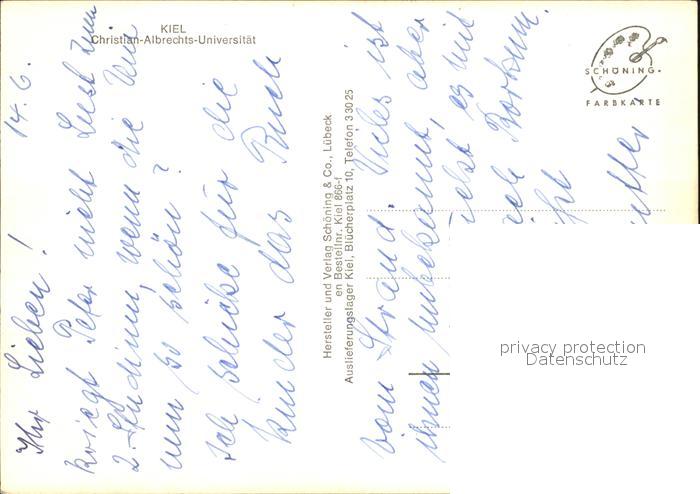 KIEL
Christian-Albrechts-Universität
14. 6.
Ihr Lieben!
Kriegt Peter nicht Lust zum
2. Studium, wenn die Uni
nun so schön?
Ich schicke für die
Kinder das Buch
vom Strand. Vieles ist
ihnen unbekannt, aber
es mit
Borkum.
Hersteller und Verlag Schöning & Co., Lübeck
en Bestellnr. Kiel 866-f
Auslieferungslager Kiel, Blücherplatz 10, Telefon 3 30 25
SCHÖNING
FARBKARTE
privacy protection
Datenschutz